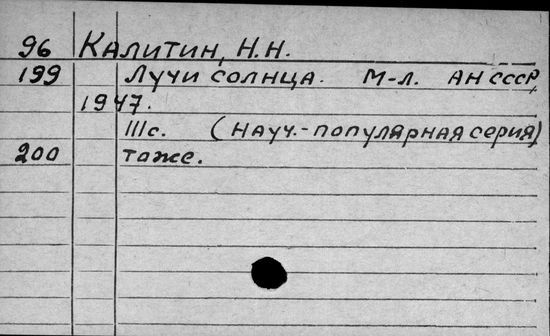 96 Калитин, Н.Н.
199 Лучи солнца. М-Л. АН СССР,
1947.
111с. (науч.-популярная серия)
200 тоже.